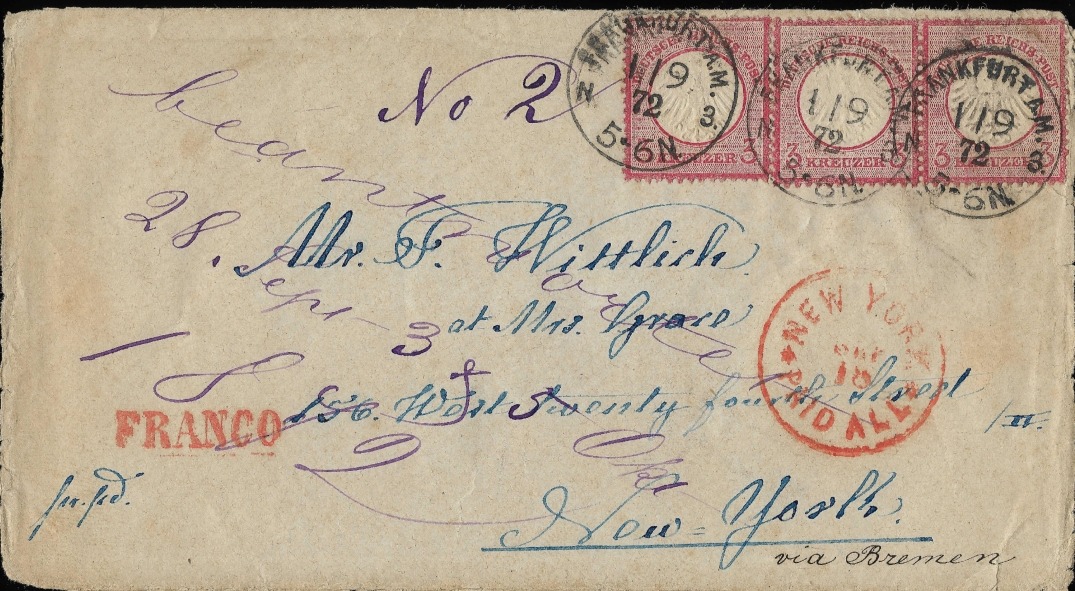 No 2
FRANKFURT A.M.
1/9
72 3.
5-6N.
FRANKFURT A.M.
1/9
72
5-6N.
FRANKFURT A.M.
1/9
72 3.
5-6N.
3 KREUZER 3
3 KREUZER 3
3 3
beantwortet
28. Sept
Mr. F. Wittlich
at Mrs. Grace
156. West Twenty fourth Street
/II.
NEW YORK
18
PAID ALL
FRANCO
New-York.
via Bremen